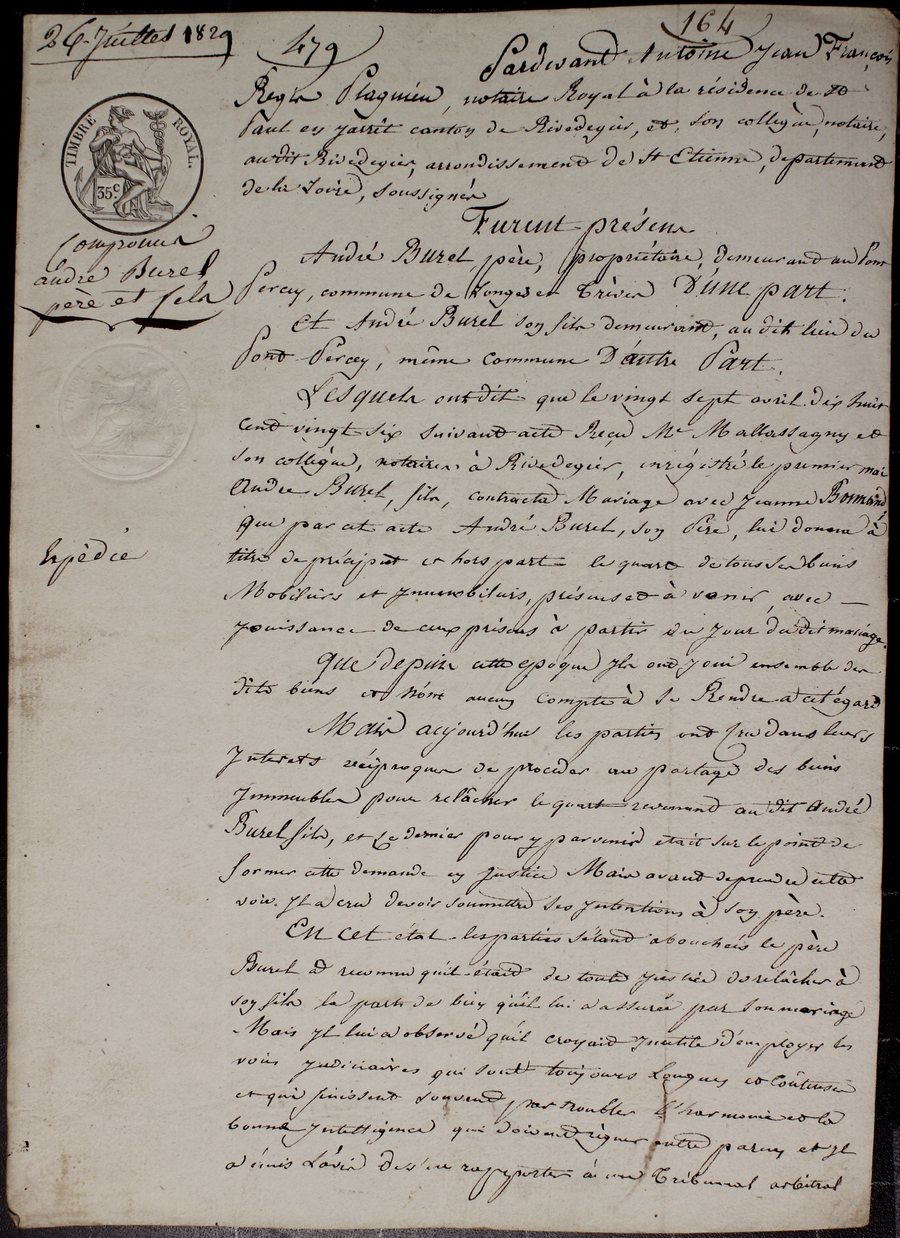 26 Juillet 1829
479
164
Pardevant Antoine Jean François
Regis Plagnieu, notaire Royal à la résidence de St
Paul en jarrêt canton de Rivedegier, et son collègue, notaire,
audit Rivedegier, arrondissement de St Etienne, departement
de la Loire, soussignés
TIMBRE ROYAL.
35 c.
Furent présens
Compromis
andré Burel
père et fils
André Burel, père, propriétaire, demeurant au Pont
Percey, commune de Longes et Trèves D'une part.
Et André Burel son fils demeurant, au dit lieu du
Pont Percey, même commune D'autre Part.
Lesquels ont dit que le vingt sept avril dix huit
cent vingt six suivant acte Reçu Me Mallassagny et
son collègue, notaires à Rivedegier, enrégistré le premier mai
André Burel, fils, contracta Mariage avec Jeanne
que par cet acte André Burel, son Père, lui donna à
Expédié
titre de préciput et hors part le quart de tous ses biens
Mobiliers et Immobiliers, présens et à venir, avec
jouissance de ceux présens à partir du jour du dit mariage.
Que depuis cette epoque Ils ont joui ensemble des
dits biens et n'ont aucun compte à se Rendre à cet égard
Mais aujourd'hui les parties ont Cru dans leurs
Interets réciproques de proceder au partage des biens
Immeubles pour relâcher le quart revenant au dit André
Burel fils, et ce dernier pour y parvenir etait sur le point de
former cette demande en justice Mais avant de prendre cette
voie Il a cru devoir soumettre ses Intentions à son père.
En cet état les parties s'étant abouchées le père
Burel a reconnu qu'il était de toute Justice de relâcher à
son fils la part de bien qu'il lui a assurée par son mariage
Mais Il lui a observé qu'il croyait Inutile d'employer les
voies judiciaires qui sont toujours Longues et Coûteuses
et qui finissent souvent par troubler l'harmonie et la
bonne Intelligence qui doivent règner entre parens et Il
a émis L'avis de s'en rapporter à un Tribunal arbitral